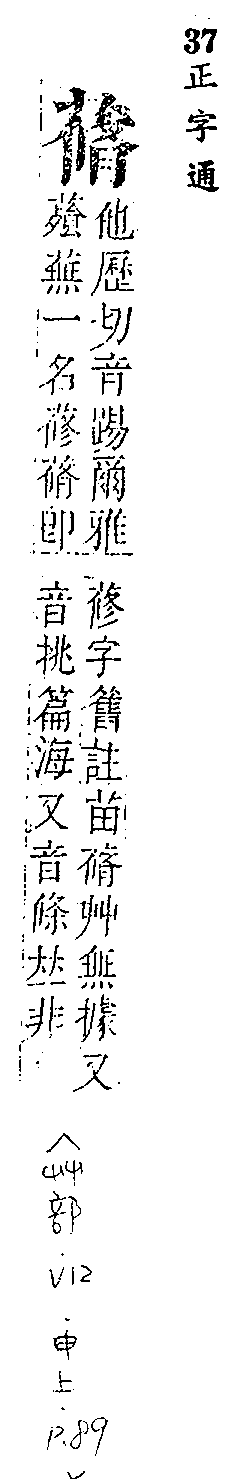 37
正字通
蓨
他歷切音踢爾雅
蕵蕪一名蓚蓨即
蓚字舊註苗蓨艸無據又
音挑篇海又音條𠀤非
〈艸部·V12·申上·P.89〉